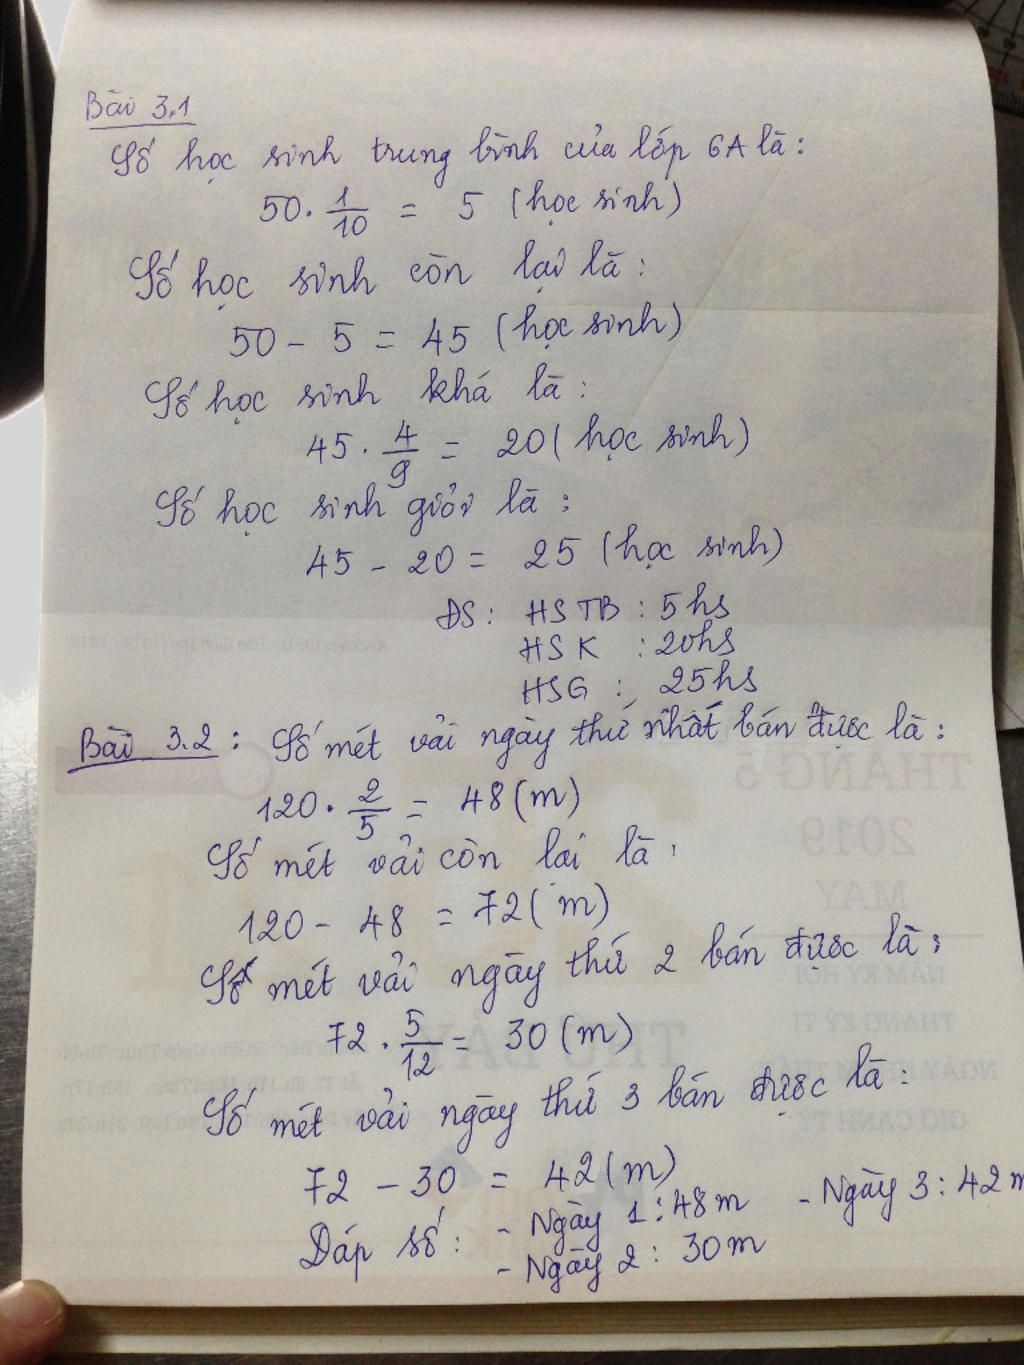 Bài 3.1
Số học sinh trung bình của lớp 6A là:
50 . 1/10 = 5 (học sinh)
Số học sinh còn lại là:
50 - 5 = 45 (học sinh)
Số học sinh khá là:
45 . 4/9 = 20 (học sinh)
Số học sinh giỏi là:
45 - 20 = 25 (học sinh)
ĐS: HSTB: 5hs
HSK: 20hs
HSG: 25hs
Bài 3.2: Số mét vải ngày thứ nhất bán được là:
120 . 2/5 = 48 (m)
Số mét vải còn lại là:
120 - 48 = 72 (m)
Số mét vải ngày thứ 2 bán được là:
72 . 5/12 = 30 (m)
Số mét vải ngày thứ 3 bán được là:
72 - 30 = 42 (m)
Đáp số: - Ngày 1: 48m - Ngày 3: 42m
- Ngày 2: 30m
THÁNG 5
2019
MAY
NĂM KỶ HỢI
THÁNG KỶ TỴ
THỨ BẢY
GIỜ CANH TÝ